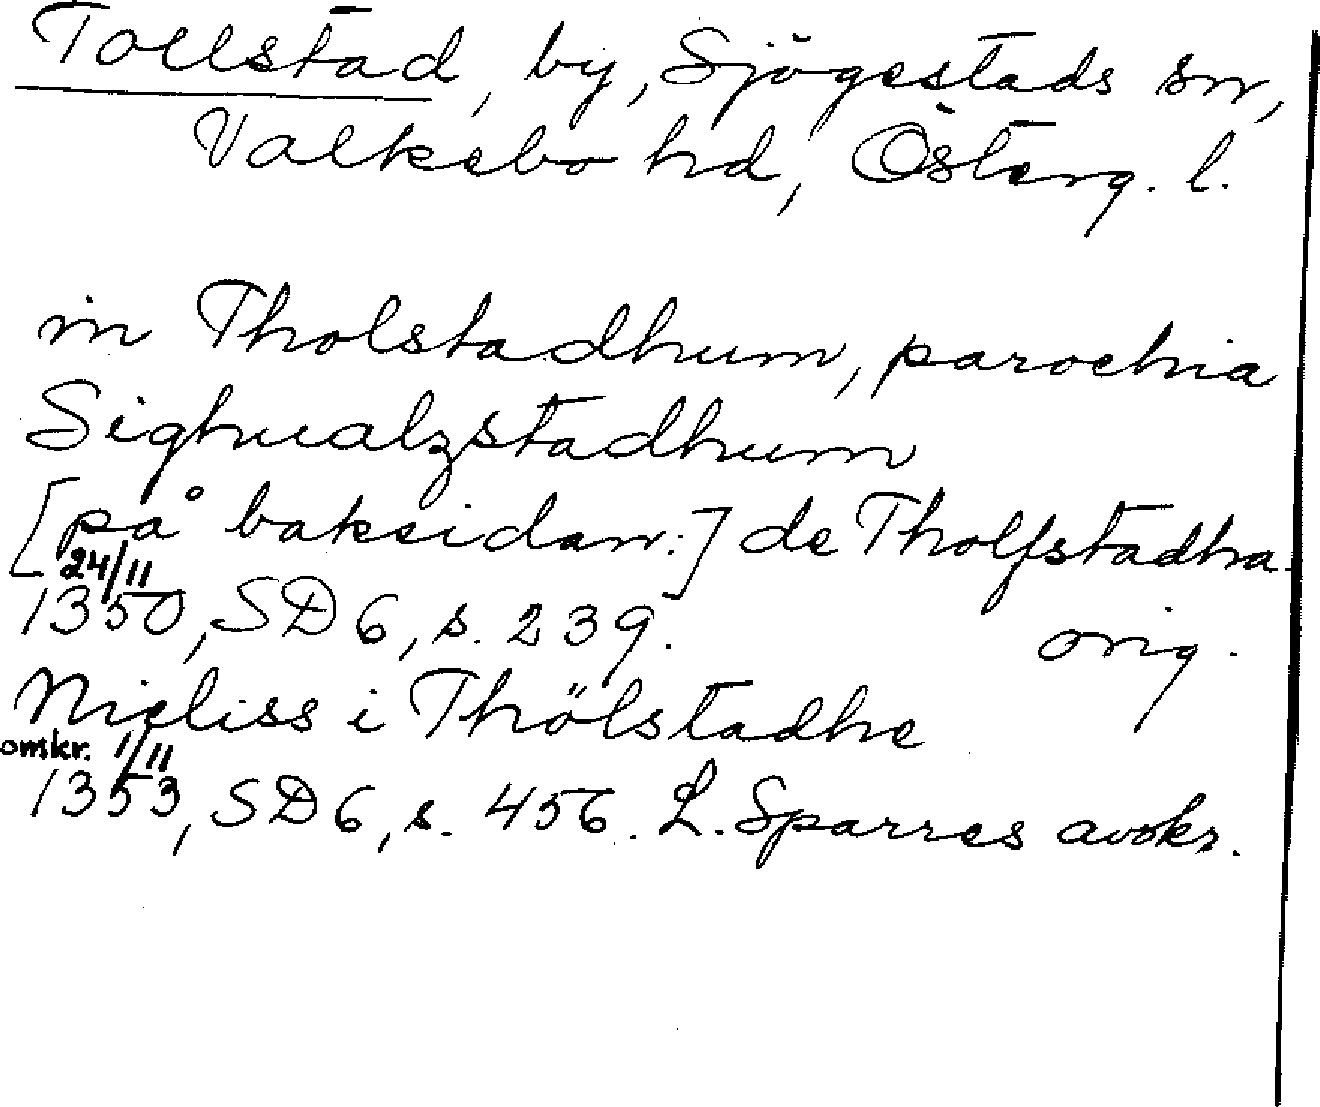 Tollstad, by, Sjögestads sn,
Valkebo hd, Österg. l.
in Tholstadhum, parochia
Sighualzstadhum
[på baksidan:] de Tholfstadha.
24/11
1350, SD 6, s. 239. orig.
Nicliss i Thölstadhe
omkr. 1/11
1353, SD 6, s. 456. L. Sparres avskr.